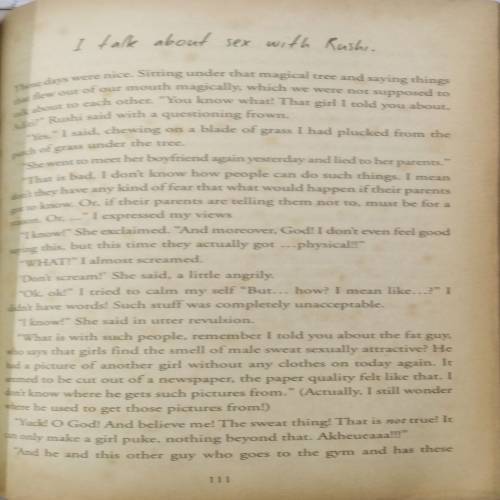 I talk about sex with Rushi.
Those days were nice. Sitting under that magical tree and saying things
that flew out of our mouth magically, which we were not supposed to
talk about to each other. "You know what! That girl I told you about,
Rushi said with a questioning frown.
"Yes," I said, chewing on a blade of grass I had plucked from the
patch of grass under the tree.
"She went to meet her boyfriend again yesterday and lied to her parents."
"That is bad. I don't know how people can do such things. I mean
don't they have any kind of fear that what would happen if their parents
got to know. Or, if their parents are telling them not to, must be for a
reason. Or, ..." I expressed my views
"I know!" She exclaimed. "And moreover, God! I don't even feel good
saying this, but this time they actually got ...physical!!"
"WHAT!" I almost screamed.
"Don't scream!" She said, a little angrily.
"Ok, ok!" I tried to calm my self "But... how? I mean like...?" I
didn't have words! Such stuff was completely unacceptable.
"I know!" She said in utter revulsion.
"What is with such people, remember I told you about the fat guy,
who says that girls find the smell of male sweat sexually attractive? He
had a picture of another girl without any clothes on today again. It
seemed to be cut out of a newspaper, the paper quality felt like that. I
don't know where he gets such pictures from." (Actually, I still wonder
where he used to get those pictures from!)
"Yuck! O God! And believe me! The sweat thing! That is not true! It
can only make a girl puke, nothing beyond that. Akheucaaa!!!"
"And he and this other guy who goes to the gym and has these
111